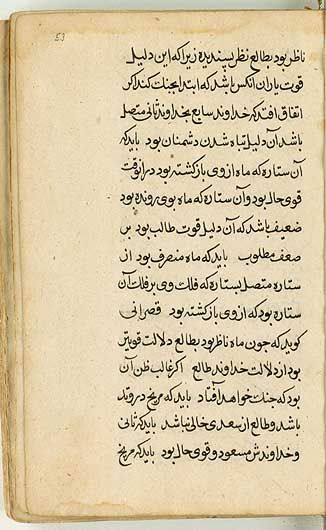 53
ناظر بود بطالع نظر پسندیده زیرا که این دلیل
قوت یاران انکس باشد که ابتدا بجنک کند اکر
اتفاق افتد که خداوند سابع بخداوند ثانی متصل
باشد آن دلیل تباه شدن دشمنان بود باید که
آن ستاره که ماه از وی بازکشته بود در آن وقت
قوی حال بود و آن ستاره که ماه بوی رونده بود
ضعیف باشد که آن دلیل قوت طالب بود بر
ضعف مطلوب باید که ماه منصرف بود از
ستاره متصل بستاره که فلک وی بر فلک آن
ستاره بود که از وی بازکشته بود قصرانی
کوید که چون ماه ناظر بود بطالع دلالت قوی‌تر
بود از دلالت خداوند طالع اکر غالب ظن آن
بود که جنک خواهد افتاد باید که مریخ در وتد
باشد و طالع از سعدی خالی نباشد باید که ثانی
و خداوندش مسعود و قوی حال بود باید که مریخ